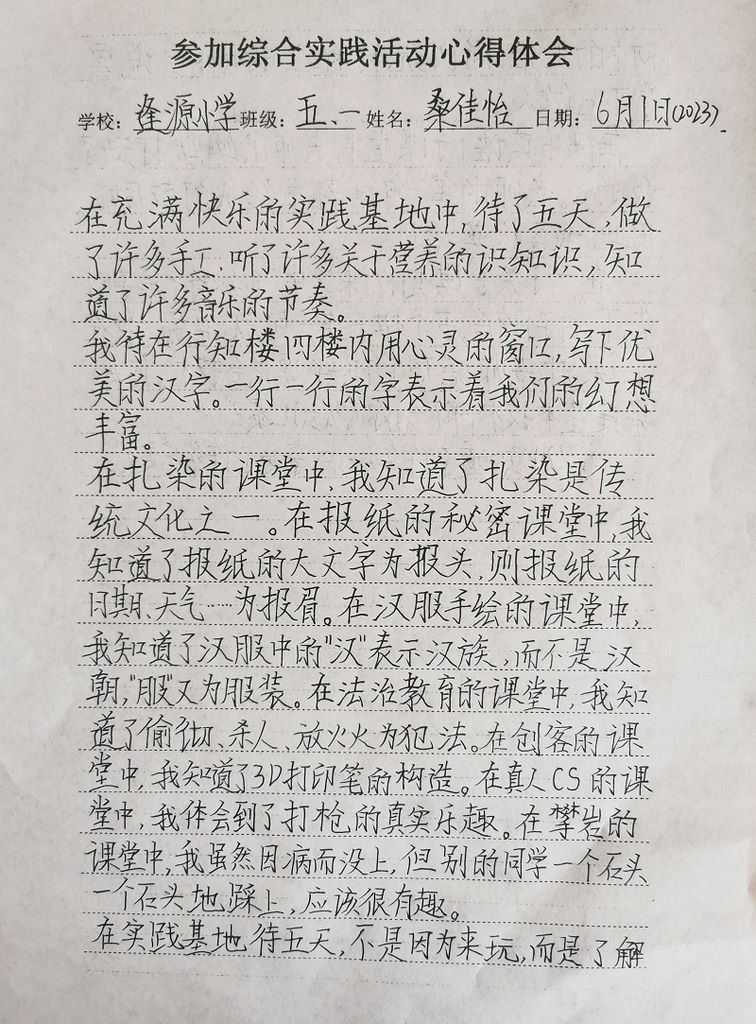 参加综合实践活动心得体会
学校：逢源小学班级：五、一姓名：桑佳怡日期：6月1日(2023).
在充满快乐的实践基地中,待了五天,做
了许多手工、听了许多关于营养的识知识,知
道了许多音乐的节奏。
我待在行知楼四楼内用心灵的窗口,写下优
美的汉字。一行一行的字表示着我们的幻想
丰富。
在扎染的课堂中,我知道了扎染是传
统文化之一。在报纸的秘密课堂中,我
知道了报纸的大文字为报头,则报纸的
日期、天气……为报眉。在汉服手绘的课堂中,
我知道了汉服中的"汉"表示汉族,而不是汉
朝,"服"又为服装。在法治教育的课堂中,我知
道了偷彻、杀人、放火火为犯法。在创客的课
堂中,我知道了3D打印笔的构造。在真人CS的课
堂中,我体会到了打枪的真实乐趣。在攀岩的
课堂中,我虽然因病而没上,但别的同学一个石头
一个石头地踩上,应该很有趣。
在实践基地待五天,不是因为来玩,而是了解